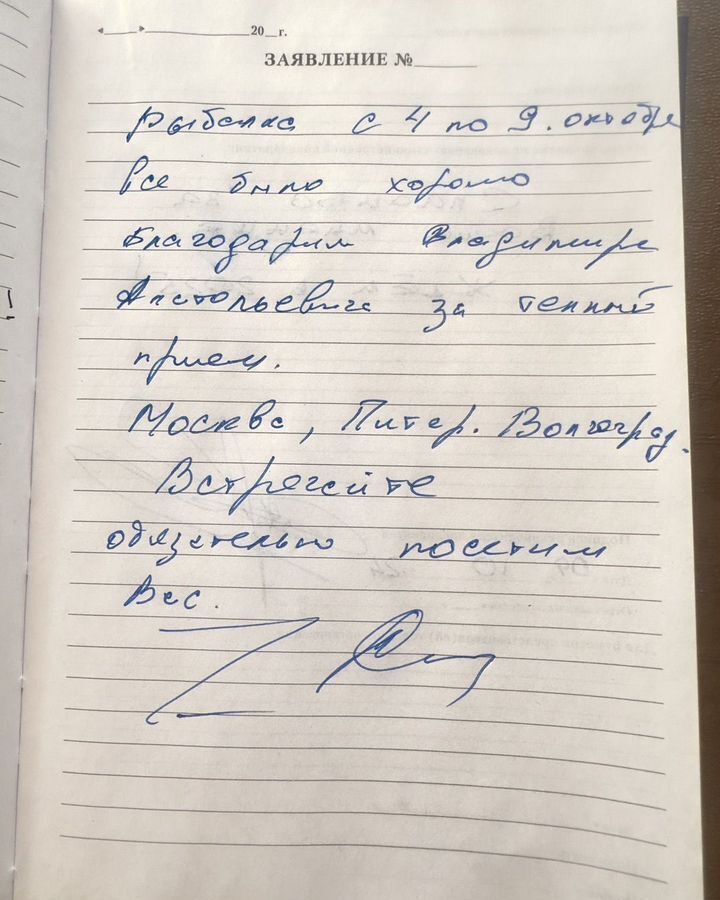 «___»____________20__г.
ЗАЯВЛЕНИЕ №______
Рыбалка с 4 по 9. октября
Все было хорошо
Благодарим Владимира
Анатольевича за теплый
прием.
Москва, Питер. Волгоград.
Встречайте
обязательно посетим
Вас.